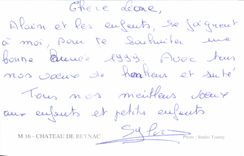 Chère Liane,
Alain et les enfants, se joignent
à moi, pour te souhaiter une
bonne année 1999. Avec tous
nos vœux de bonheur et santé
Tous nos meilleurs vœux
aux enfants et petits enfants
M 16 - CHATEAU DE BEYNAC
Photo : Studio Tourny